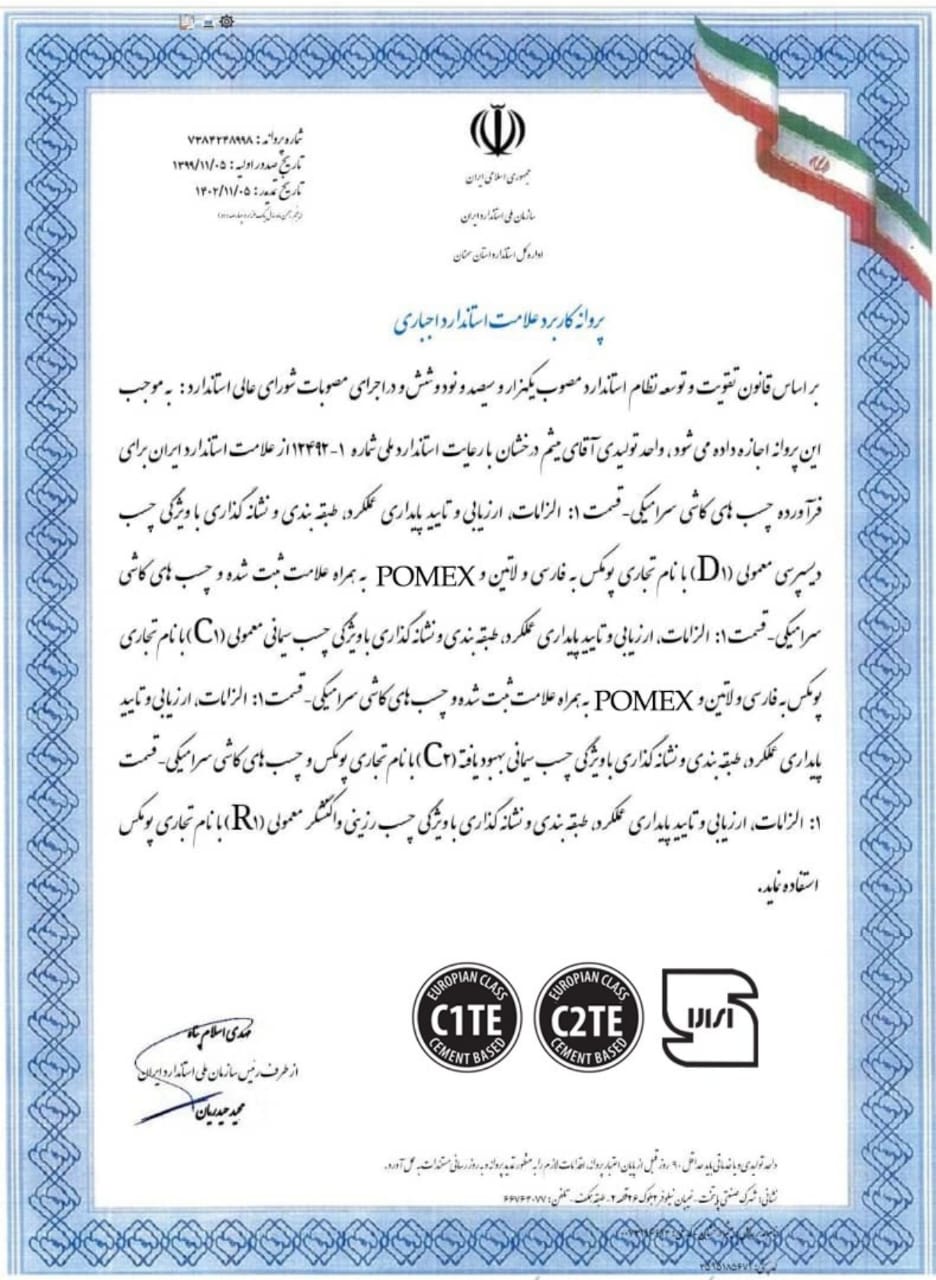 شماره پروانه: ۷۳۸۴۲۴۸۹۹۸
تاریخ صدور اولیه: ۱۳۹۹/۱۱/۰۵
تاریخ تمدید: ۱۴۰۲/۱۱/۰۵
جمهوری اسلامی ایران
سازمان ملی استاندارد ایران
اداره کل استاندارد استان سمنان
پروانه کاربرد علامت استاندارد اجباری
بر اساس قانون تقویت و توسعه نظام استاندارد مصوب یکهزار و سیصد و نود و شش و در اجرای مصوبات شورای عالی استاندارد: به موجب
این پروانه اجازه داده می شود، واحد تولیدی آقای میثم درخشان با رعایت استاندارد ملی شماره ۱-۱۲۴۹۲ از علامت استاندارد ایران برای
فرآورده چسب های کاشی سرامیکی-قسمت ۱: الزامات، ارزیابی و تایید پایداری عملکرد، طبقه بندی و نشانه گذاری با ویژگی چسب
دیسپرسی معمولی (D۱) با نام تجاری پومکس به فارسی و لاتین و POMEX به همراه علامت ثبت شده و چسب های کاشی
سرامیکی-قسمت ۱: الزامات، ارزیابی و تایید پایداری عملکرد، طبقه بندی و نشانه گذاری با ویژگی چسب سیمانی معمولی (C۱) با نام تجاری
پومکس به فارسی و لاتین و POMEX به همراه علامت ثبت شده و چسب های کاشی سرامیکی-قسمت ۱: الزامات، ارزیابی و تایید
پایداری عملکرد، طبقه بندی و نشانه گذاری با ویژگی چسب سیمانی بهبود یافته (C۲) با نام تجاری پومکس و چسب های کاشی سرامیکی-قسمت
۱: الزامات، ارزیابی و تایید پایداری عملکرد، طبقه بندی و نشانه گذاری با ویژگی چسب رزینی واکنشگر معمولی (R۱) با نام تجاری پومکس
استفاده نماید.
EUROPIAN CLASS
C1TE
CEMENT BASED
EUROPIAN CLASS
C2TE
CEMENT BASED
مهدی اسلام پناه
از طرف رئیس سازمان ملی استاندارد ایران
مجید حیدریان
واحد تولیدی و یا خدماتی باید حداقل ۹۰ روز قبل از پایان اعتبار پروانه، اقدامات لازم را به منظور تمدید پروانه و به روز رسانی مستندات به عمل آورد.
نشانی: شهرک صنعتی پایتخت - خیابان نیلوفر ۲ بلوک ۲۶ قطعه ۲ - طبقه همکف - تلفن: ۶۶۷۶۲۰۷۷